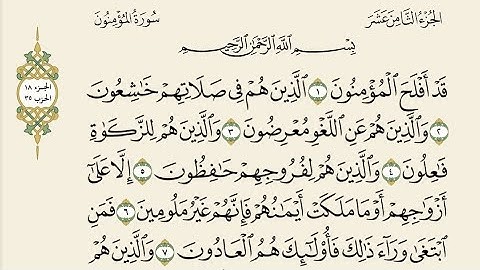 الجُزْءُ الثَّامِنَ عَشَرَ
سُورَةُ المُؤْمِنُونَ
بِسْمِ اللَّهِ الرَّحْمَٰنِ الرَّحِيمِ
الجزء ١٨
الحزب ٣٥
قَدْ أَفْلَحَ الْمُؤْمِنُونَ ١ الَّذِينَ هُمْ فِي صَلَاتِهِمْ خَاشِعُونَ
٢ وَالَّذِينَ هُمْ عَنِ اللَّغْوِ مُعْرِضُونَ ٣ وَالَّذِينَ هُمْ لِلزَّكَوٰةِ
فَاعِلُونَ ٤ وَالَّذِينَ هُمْ لِفُرُوجِهِمْ حَافِظُونَ ٥ إِلَّا عَلَىٰ
أَزْوَاجِهِمْ أَوْ مَا مَلَكَتْ أَيْمَانُهُمْ فَإِنَّهُمْ غَيْرُ مَلُومِينَ ٦ فَمَنِ
ابْتَغَىٰ وَرَاءَ ذَٰلِكَ فَأُولَٰئِكَ هُمُ الْعَادُونَ ٧ وَالَّذِينَ هُمْ